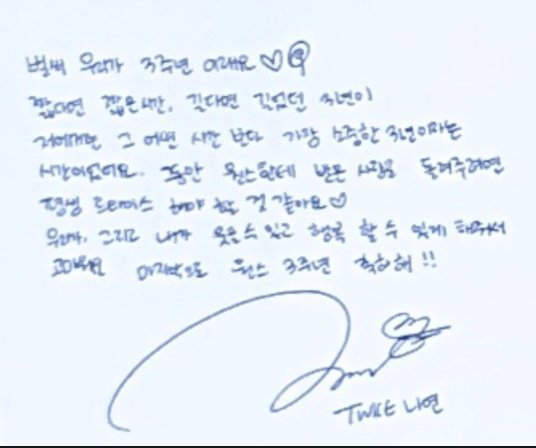 벌써 우리가 3주년 이래요♡
짧다면 짧은시간, 길다면 길었던 3년이
저에게는 그 어떤 시간 보다 가장 소중한 3년이라는
시간이었어요. 동안 원스한테 받은 사랑을 돌려주려면
평생 로미오 해야 할 것 같아요♡
우리가, 그리고 내가 웃을 수 있고 행복 할 수 있게 해주셔서
고마워요 마지막으로 원스 3주년 축하해!!
TWICE 나연